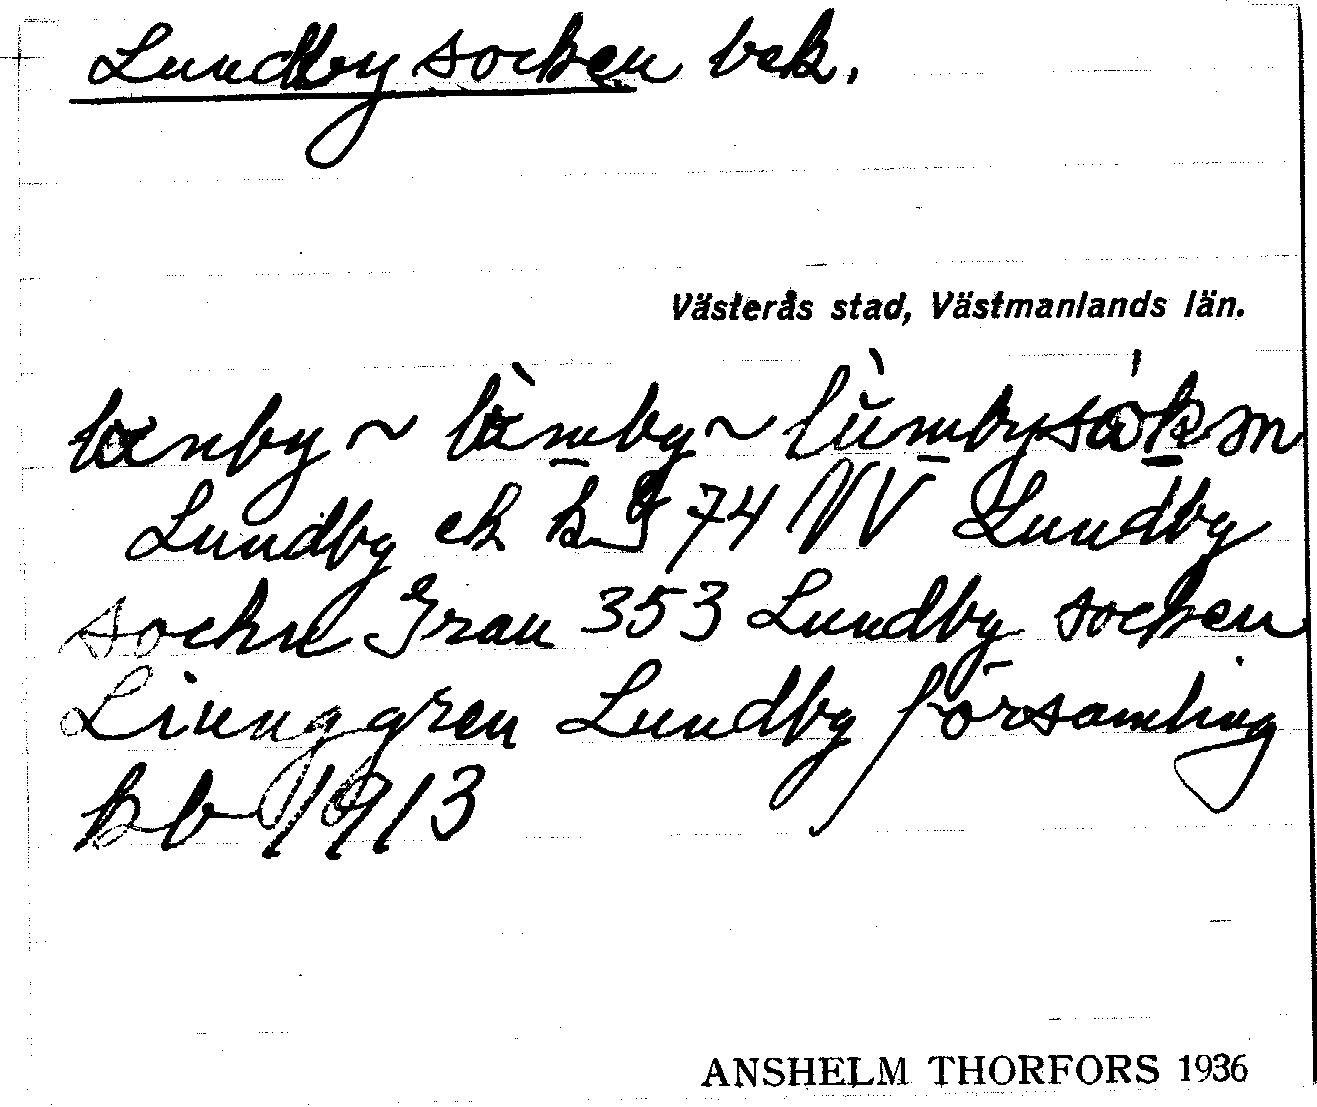 Lundby socken bek.
Västerås stad, Västmanlands län.
lænby ~ ~
Lundby ek k 74 VV Lundby
sochn Grau 353 Lundby socken
Liunggren Lundby församling
kb 1913
ANSHELM THORFORS 1936